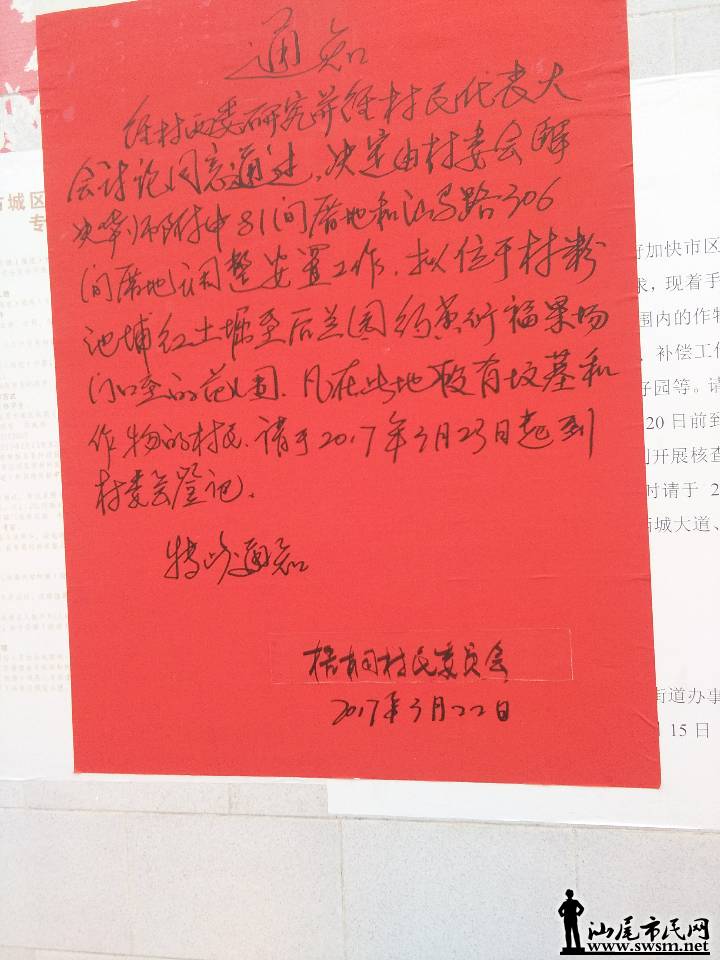 通知
经村两委研究并经村民代表大
会讨论同意通过，决定由村委会解
决华师附中81间厝地和汕马路306
间厝地调整安置工作，拟位于村粉
池埔红土堀至后兰园约英行福果场
门口至的范围．凡在此地段有坟墓和
作物的村民．请于2017年3月23日起到
村委会登记．
特此通知
梧桐村民委员会
2017年3月22日
城区
专
好加快市区
求，现着手
围内的作物
、补偿工作
子园等。请
20日前到
开展核查
时请于 2
城大道、
街道办事
月15日
汕尾市民网
www.swsm.net